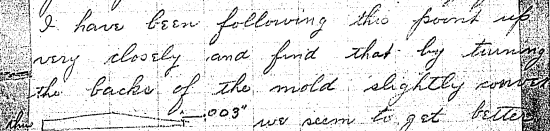 I have been following this point up
very closely and find that by turning
the backs of the mold slightly convex
thus .003" we seem to get better